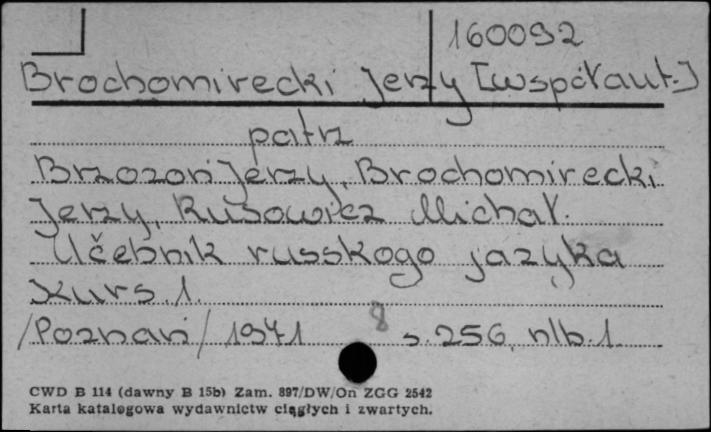 160092
Brochomirecki Jerzy [współaut.]
patrz
Brzozoń Jerzy, Brochomirecki
Jerzy, Rusowicz Michał.
Učebnik russkogo jazyka
Kurs 1.
/Poznań/ 1971 8 s. 256, nlb. 1.
CWD B 114 (dawny B 15b) Zam. 897/DW/On ZGG 2542
Karta katalogowa wydawnictw ciągłych i zwartych.